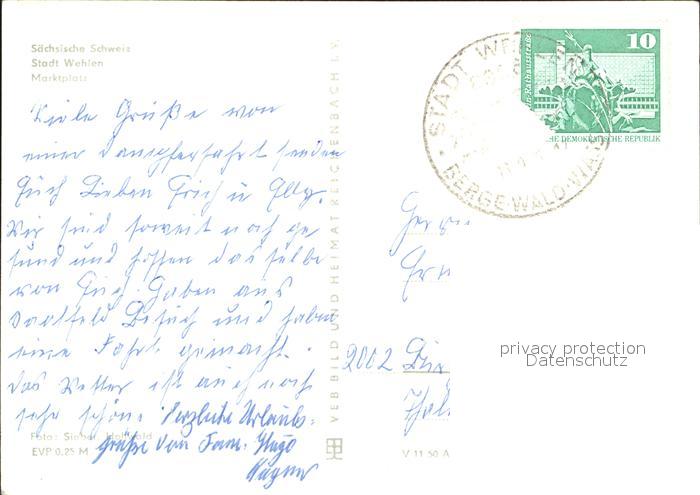 Sächsische Schweiz
Stadt Wehlen
Marktplatz
Viele Grüße von
einer Dampferfahrt senden
Euch Lieben Erich u Elly.
Wir sind soweit noch ge
sund und hoffen dasselbe
von Euch. Haben aus
Saalfeld Besuch und haben
eine Fahrt gemacht.
Das Wetter ist auch noch
sehr schön. Herzliche Urlaubs-
grüße von Fam. Hugo
Wagner
Foto:
EVP 0,25 M
VEB BILD UND HEIMAT REICHENBACH I. V.
V 11 50 A
10
HE DEMOKRATISCHE REPUBLIK
STADT WEHLEN
BERGE-WALD-WAS
2002
privacy protection
Datenschutz